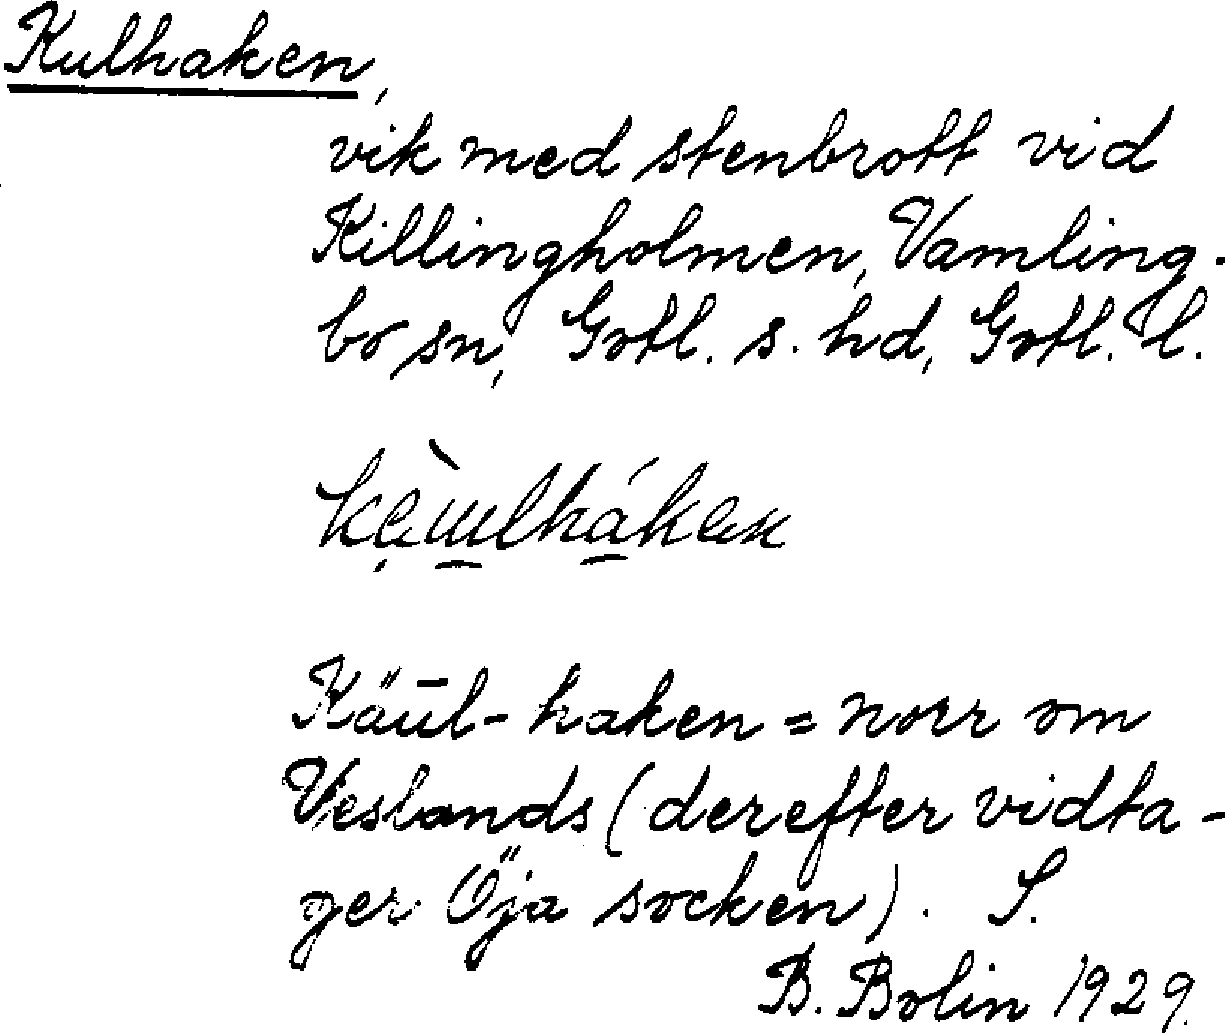 Kulhaken,
vik med stenbrott vid
Killingholmen, Vamling-
bo sn, Gotl. s. hd, Gotl. l.
Käūl-haken = norr om
Veslands (derefter vidta-
ger Öja socken). S.
B. Bolin 1929.